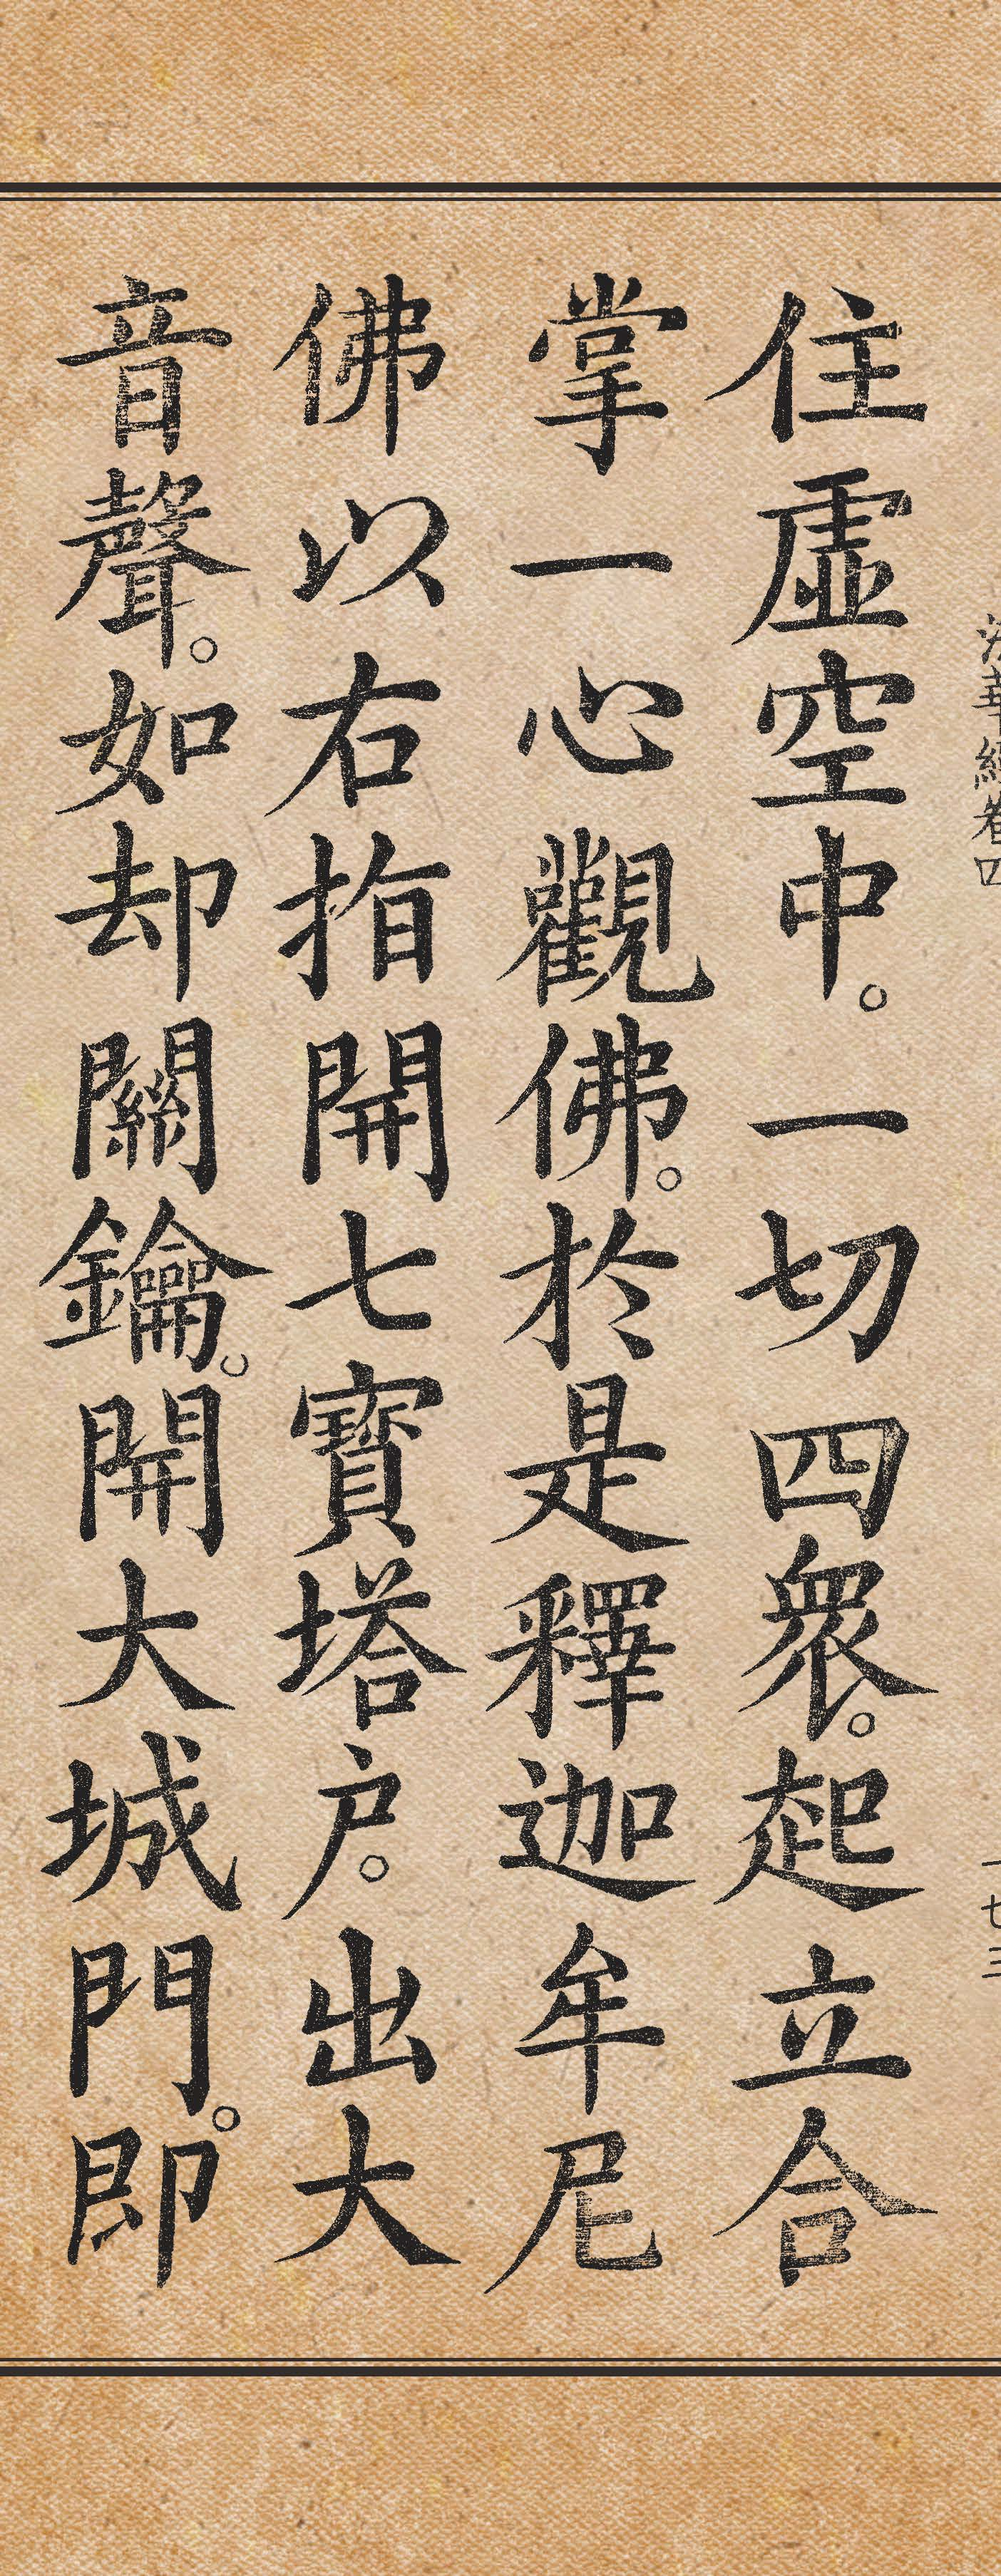 法華經卷四
一七三
住虛空中。一切四衆。起立合
掌一心觀佛。於是釋迦牟尼
佛以右指開七寶塔戶。出大
音聲。如却關鑰。開大城門。即